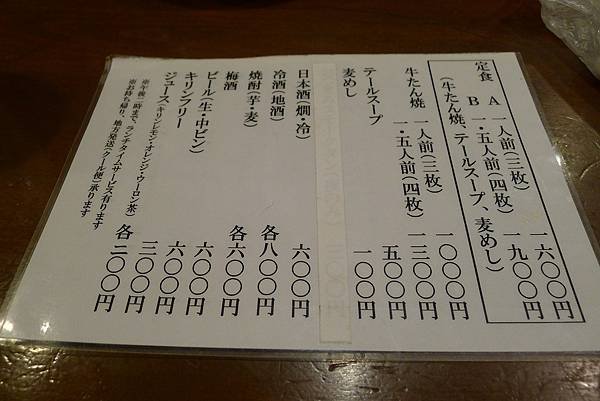 定食 A 一人前(三枚) 一六〇〇円
B 一・五人前(四枚) 一九〇〇円
(牛たん焼、テールスープ、麦めし)
牛たん焼 一人前(三枚) 一〇〇〇円
一・五人前(四枚) 一三〇〇円
テールスープ 五〇〇円
麦めし 一〇〇円
日本酒(燗・冷) 六〇〇円
冷酒(地酒) 各八〇〇円
焼酎(芋・麦) 各六〇〇円
梅酒 六〇〇円
ビール(生・中ビン) 六〇〇円
キリンフリー 三〇〇円
ジュース(キリンレモン・オレンジ・ウーロン茶) 各二〇〇円
※午後二時まで、ランチタイムサービス有ります
※お持ち帰り、地方発送(クール便)承ります